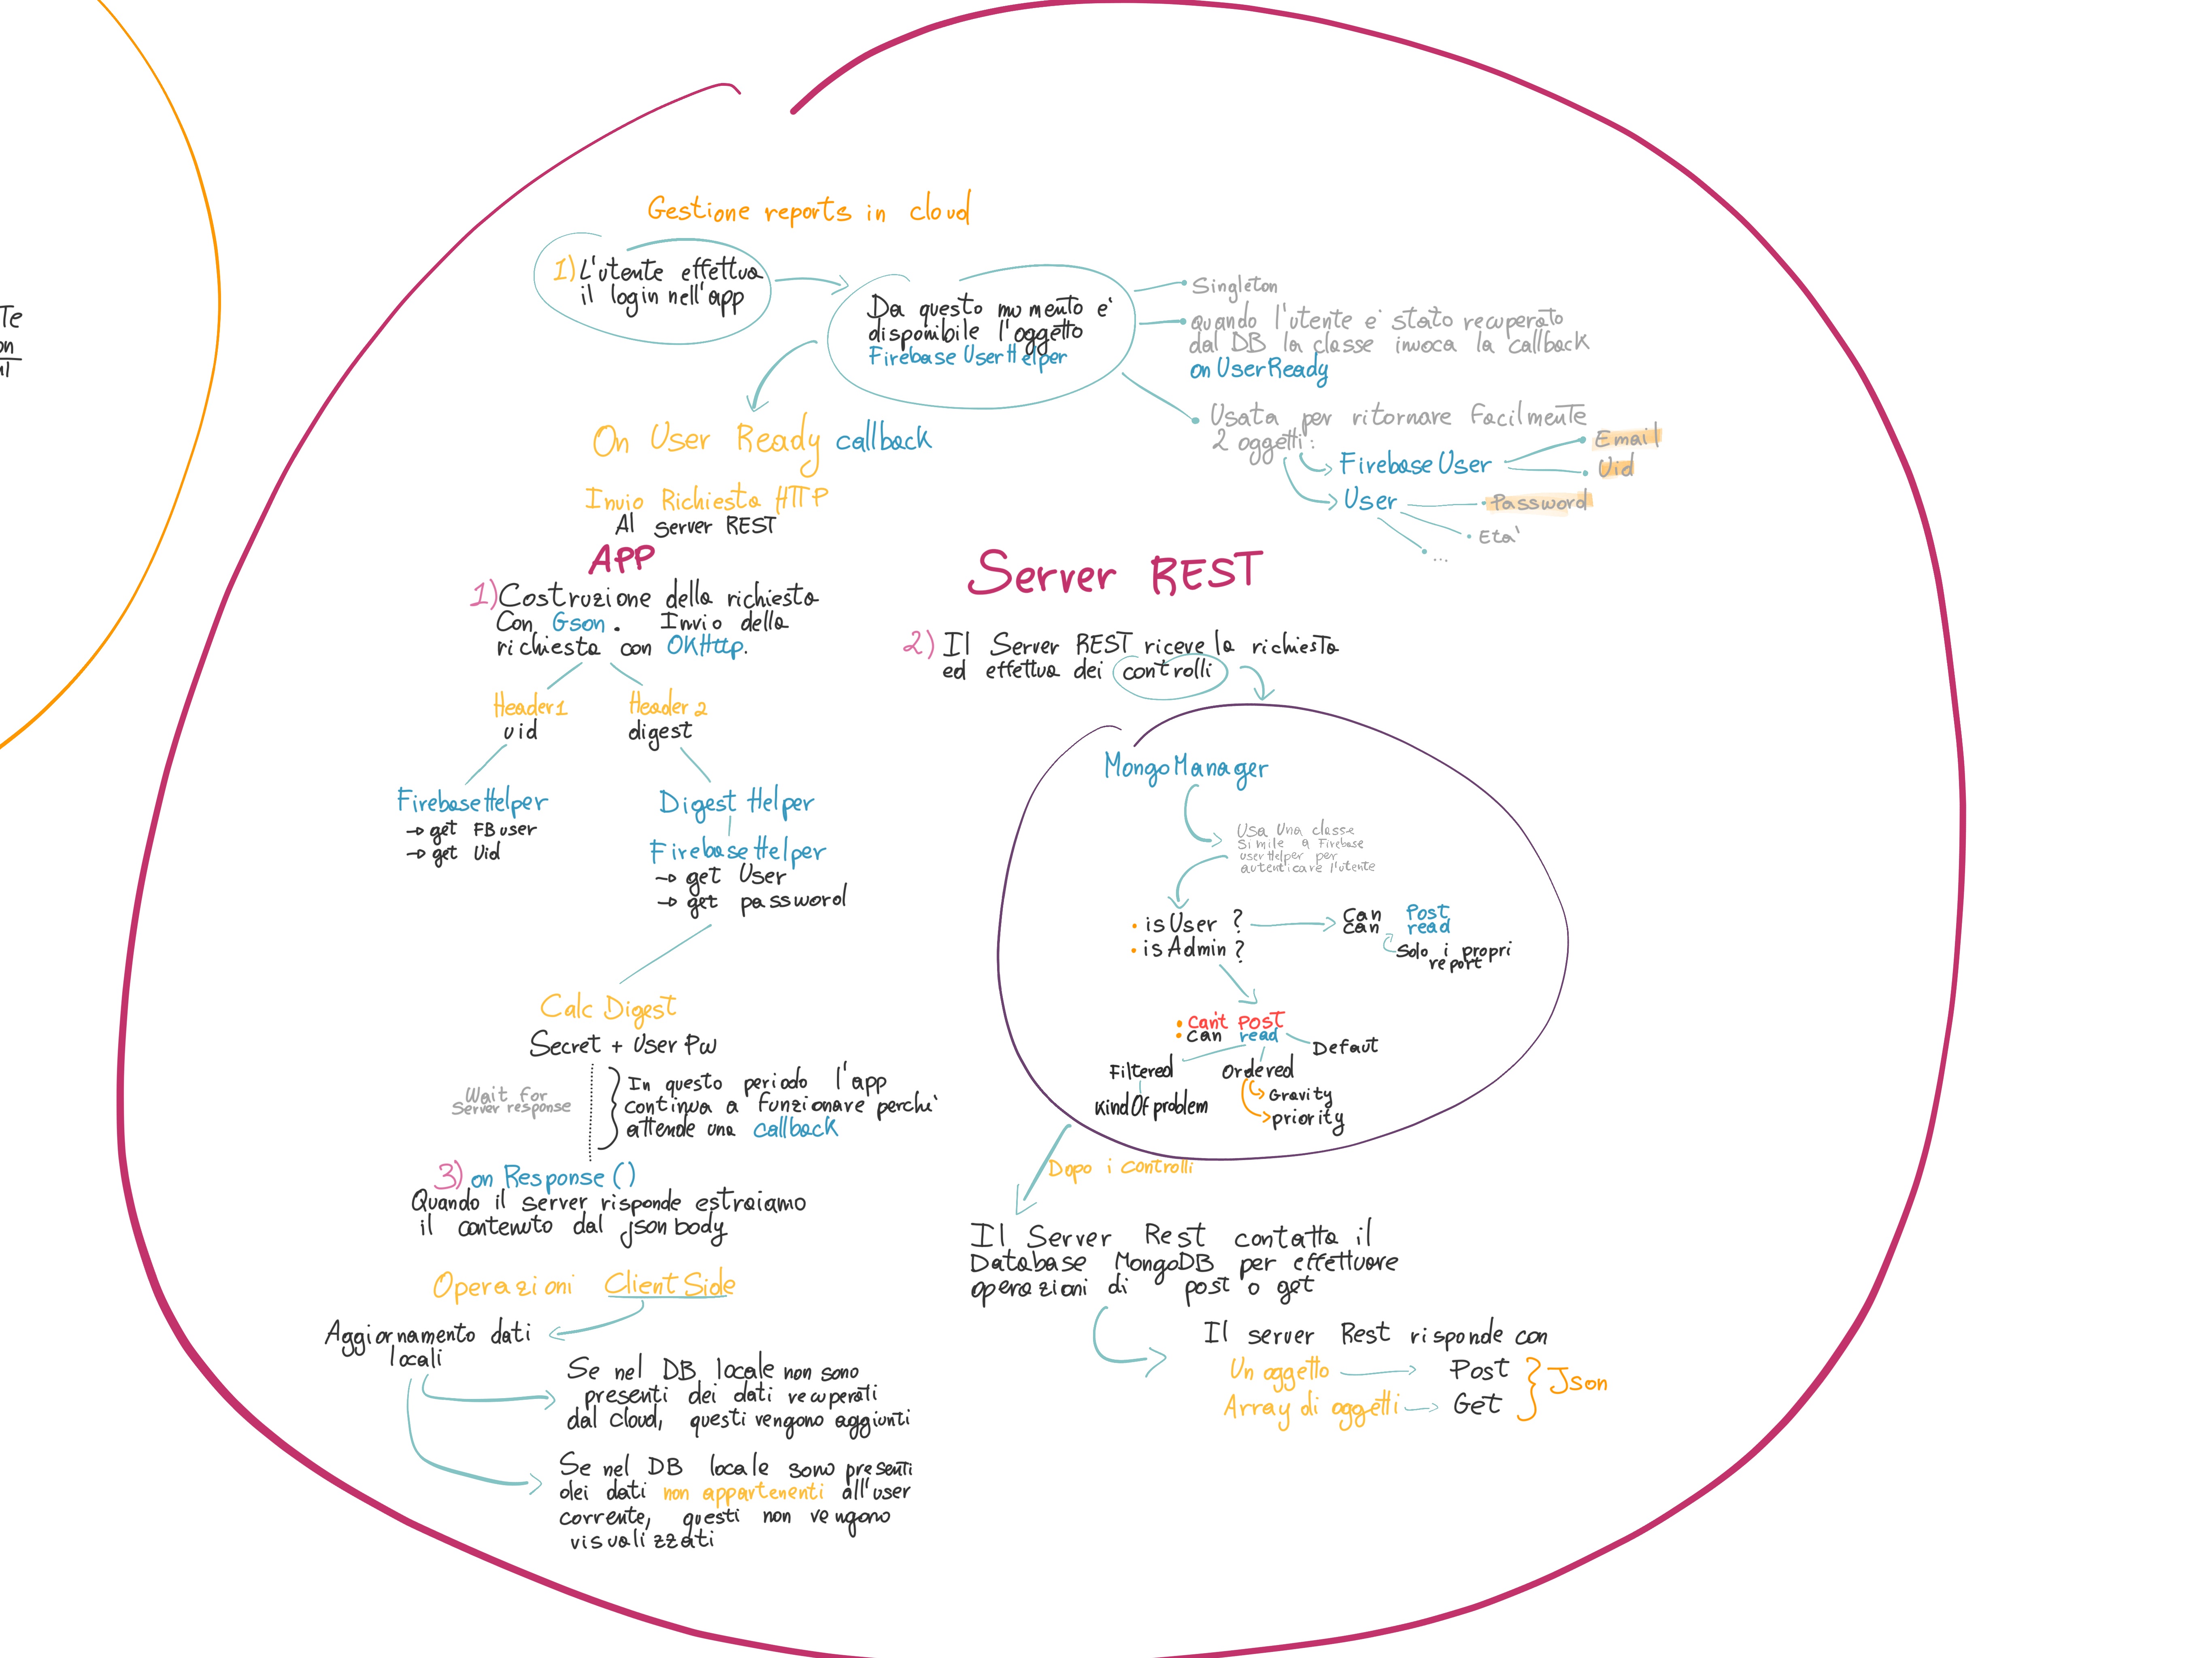 Te
on
Gestione reports in cloud
1) L'utente effettua
il login nell'app
Da questo momento e'
disponibile l'oggetto
Firebase UserHelper
Singleton
quando l'utente e' stato recuperato
dal DB la classe invoca la callback
on UserReady
Usata per ritornare facilmente
2 oggetti:
Firebase User
Email
Uid
User
Password
Eta'
...
On User Ready callback
Invio Richiesta HTTP
Al server REST
APP
1) Costruzione della richiesta
Con Gson. Invio della
richiesta con OKHttp.
Header1
uid
Header 2
digest
FirebaseHelper
→ get FBuser
→ get Uid
Digest Helper
FirebaseHelper
→ get User
→ get password
Calc Digest
Secret + User Pw
Wait for
Server response
In questo periodo l'app
continua a funzionare perche'
attende una callback
3) on Response ()
Quando il server risponde estraiamo
il contenuto dal json body
Operazioni Client Side
Aggiornamento dati
locali
Se nel DB locale non sono
presenti dei dati recuperati
dal cloud, questi vengono aggiunti
Se nel DB locale sono presenti
dei dati non appartenenti all'user
corrente, questi non vengono
visualizzati
Server REST
2) Il Server REST riceve la richiesta
ed effettua dei controlli
MongoManager
Usa Una classe
Simile a Firebase
userHelper per
autenticare l'utente
• isUser ?
• isAdmin ?
Can Post
can read
Solo i propri
report
• Can't POST
• can read
Defaut
Filtered
KindOfproblem
Ordered
Gravity
priority
Dopo i controlli
Il Server Rest contatta il
Database MongoDB per effettuare
operazioni di post o get
Il server Rest risponde con
Un oggetto → Post
Array di oggetti → Get
Json